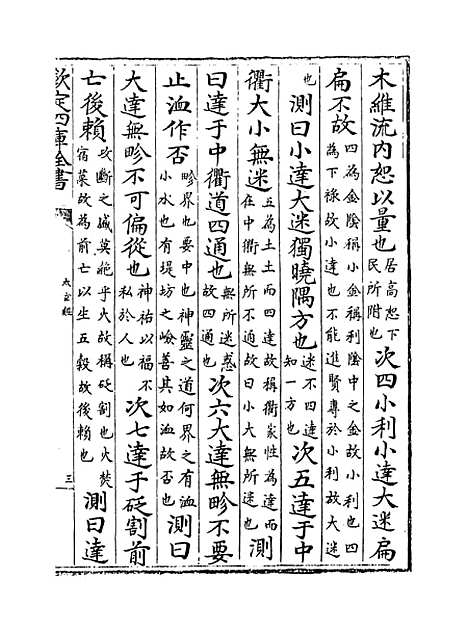 木維流内恕以量也居高恕下民所附也次四小利小達大迷扁
扁不故四為金陰稱小金稱利陰中之金故小利也四為下祿故小達也不能進賢專於小利故大迷
也測曰小達大迷獨曉隅方也迷不四達知一方也次五達于中
衢大小無迷五為土土而四達故稱衢家性為達而在中衢無所不通故曰小大無所迷也測
曰達于中衢道四通也無所迷惑故四通也次六大達無畛不要
止洫作否畛界也要中也神靈之道何界之有洫小水也有堤坊之嶮善其如洫故否也測曰
大達無畛不可偏從也神祐以福不私於人也次七達于砭割前
亡後賴攻斷之域莫絶乎火故稱砭割也火焚宿菜故為前亡以生五穀故後賴也測曰達
欽定四庫全書
太玄經
三